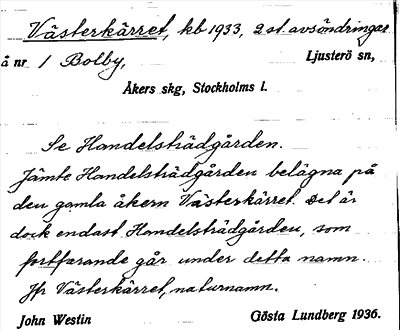 Västerkärret, kb 1933, 2 st. avsöndringar
å nr 1 Bolby, Ljusterö sn,
Åkers skg, Stockholms l.
Se Handelsträdgården.
Jämte Handelsträdgården belägna på
den gamla åkern Västerkärret. Det är
dock endast Handelsträdgården, som
fortfarande går under detta namn.
Jfr Västerkärret, naturnamn.
John Westin Gösta Lundberg 1936.